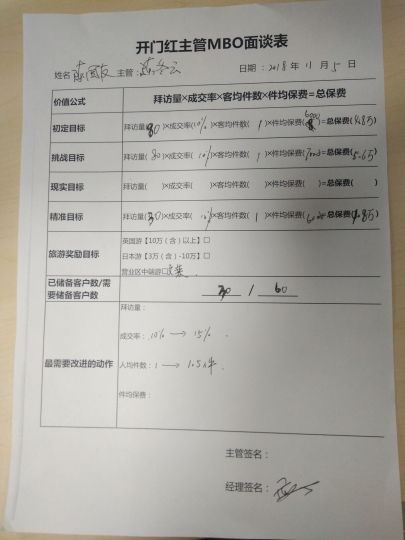 开门红主管MBO面谈表
姓名 主管： 日期：2018年11月5日
价值公式 拜访量×成交率×客均件数×件均保费=总保费
初定目标 拜访量(80)×成交率(10%)×客均件数(1)×件均保费(6000)=总保费(4.8万)
挑战目标 拜访量(80)×成交率(10%)×客均件数(1)×件均保费(7000)=总保费(5.6万)
现实目标 拜访量( )×成交率( )×客均件数( )×件均保费( )=总保费( )
精准目标 拜访量(30)×成交率(10%)×客均件数(1)×件均保费(6000)=总保费(1.8万)
旅游奖励目标
英国游【10万（含）以上】□
日本游【3万（含）-10万】□
营业区中端游□
已储备客户数/需要储备客户数 30 / 60
最需要改进的动作
拜访量：
成交率：10% → 15%
人均件数：1 → 1.05件
件均保费：
主管签名：
经理签名：